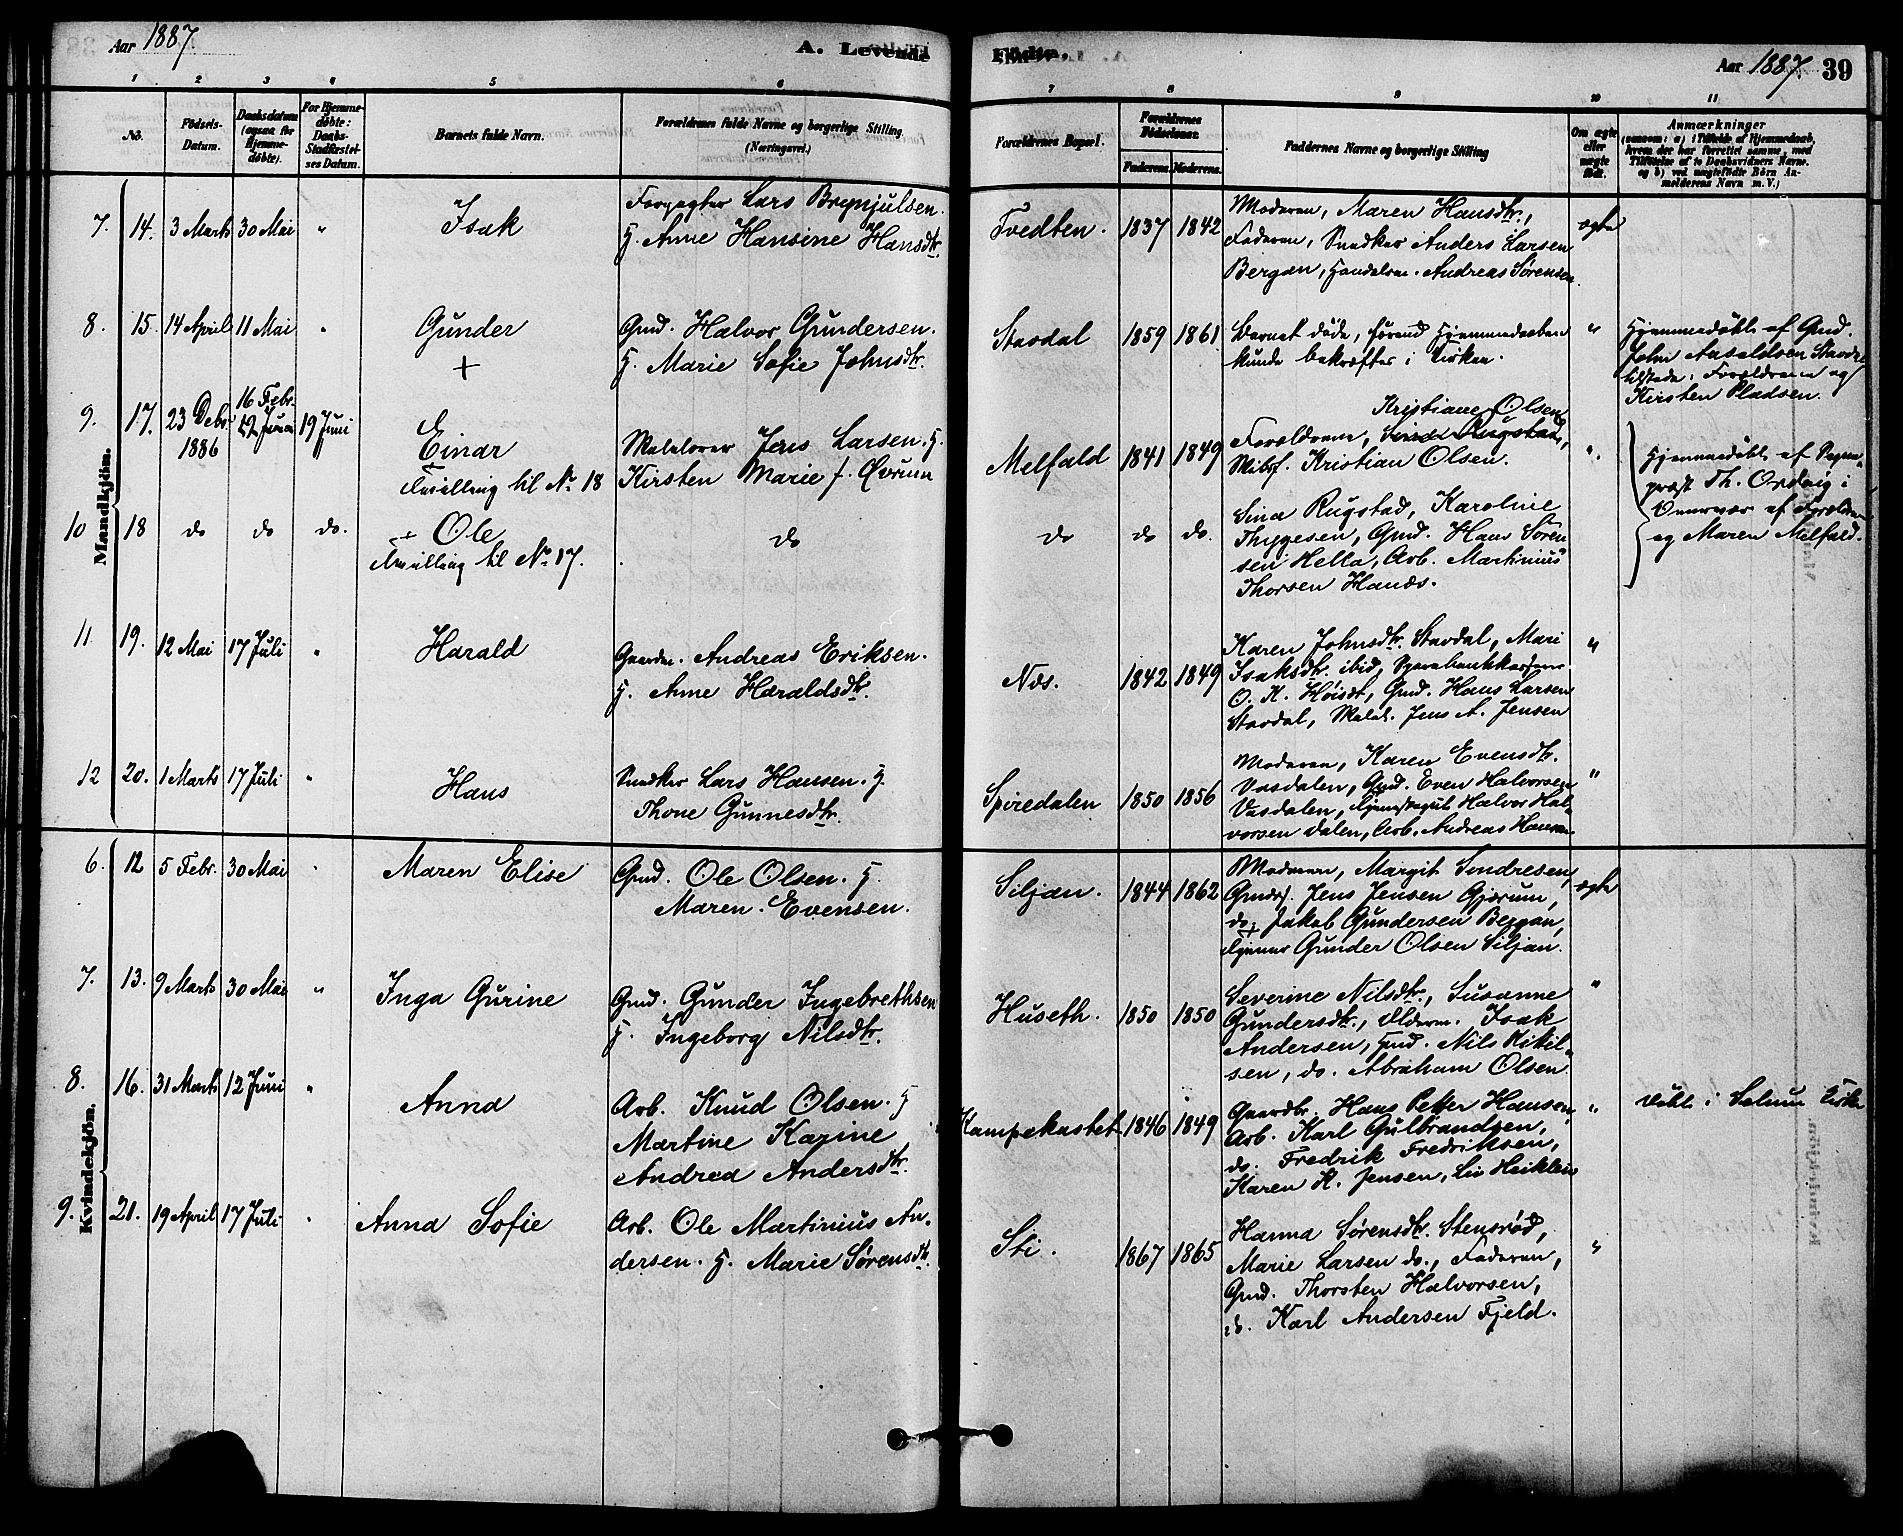 Aar 1887.
A. Levende
Fødte.
Aar 1887. 39
1 2 3 4 5 6 7 8 9 10 11
No.
Fødsels-Datum.
Daabsdatum (ogsaa for Hjemmedøbte).
For Hjemmedøbte: Daabs-Stadfæstelses Datum.
Barnets fulde Navn.
Forældrenes fulde Navne og borgerlige Stilling.
(Næringsvei.)
Forældrenes Bopæl.
Forældrenes Fødselsaar.
Faderens. Moderens.
Faddernes Navne og borgerlige Stilling
Om ægte eller uægte født.
Anmærkninger
(saasom: a) i Tilfælde af Hjemmedaab, hvem der har forrettet samme, med Tilføielse af to Daabsvidners Navne. og b) ved uægtefødte Børn Anmelderens Navn m. V.)
Mandkjön.
7. 14. 3 Marts 30 Mai " Isak
Forpagter Lars Brynjulsen.
H. Anne Hansine Hansdtr.
Tvedten. 1837 1842
Moderen, Maren Hansdtr.,
Faderen, Snedker Anders Larsen
Bergan, Handelsm. Andreas Sørensen.
ægte
8. 15. 14 April 11 Mai " Gunder
+
Gmd. Halvor Gundersen.
H. Marie Sofie Johnsdtr.
Stavdal 1859 1861
Barnet døde, førend Hjemmedaaben
kunde bekræftes i Kirken.
"
Hjemmedøbt af Gmd.
John Stavdal
tilstede: Forældrene og
Kirsten Pladsen.
9. 17. 23 Debr. 1886 16 Febr. 19 Juni 19 Juni
Einar
Tvilling til No. 18
Malelover Jens Larsen. H.
Kirsten Marie f. Øvrum
Melfald 1841 1849
Kristiane Olsen
Forældrene, Sina Rugstad,
Skibsf. Kristian Olsen.
"
Hjemmedøbt af Sogne-
præst Th. Ording i
Overvær af Forældrene
og Maren Melfald.
10 18 do do do.
+ Ole
Tvilling til No. 17.
do
do do do.
Sina Rugstad, Karoline
Thygesen, Gmd. Hans Søren
sen Hella, Arb. Martinius
Thorsen Hanås.
11 19. 12 Mai 17 Juli " Harald
Gaardbr. Andreas Eriksen.
H. Anne Haraldsdtr.
Næs. 1842 1849
Karen Johnsdtr. Stavdal, Mari
Isaksdtr. ibid, Sparebankkasserer
O. K. Høisdt, Gmd. Hans Larsen
Stavdal, Jens A. Jensen
"
12 20. 1 Marts 17 Juli " Hans
Snedker Lars Hansen. H.
Thone Gunnesdtr.
Spiredalen 1850 1856
Moderen, Karen Evensdtr.
Vasdalen, Gmd. Even Halvorsen
Vasdalen, Halvor Hal-
vorsen Dalen, Arb. Andreas Hansen
"
Kvindekjön.
6. 12 5 Febr. 30 Mai " Maren Elise
Gmd. Ole Olsen. H.
Maren Evensen.
Siljan. 1844 1862
Moderen, Margit Sondresen,
Gmd. Jens Jensen Gjærum,
do. Jakob Gundersen Bergan,
Tjener Gunder Olsen Siljan.
ægte
7. 13. 9 Marts 30 Mai " Inga Gurine
Gmd. Gunder Ingebrethsen
H. Ingeborg Nilsdtr.
Huseth. 1850 1850
Severine Nilsdtr., Susanne
Gundersdtr., Isak
Andersen, Gmd. Nils Kitil-
sen, do. Abraham Olsen
"
8. 16. 31 Marts 12 Juni " Anna
Arb. Knud Olsen. H
Martine Karine
Andrea Andersdtr.
Kampekastet 1846 1849
Gaardbr. Hans Petter Hansen,
Arb. Karl Gulbrandsen,
do. Fredrik Fredriksen,
Karen K. Jensen, Liv Heiklien
"
Døbt i Solum Kirke
9. 21. 19 April 17 Juli " Anna Sofie
Arb. Ole Martinius An-
dersen. H. Marie Sørensdtr.
Sti. 1867 1865
Hanna Sørensdtr. Stensrød,
Marie Larsen do., Faderen,
Gmd. Thorsten Halvorsen,
do. Karl Andersen Fjeld.
"